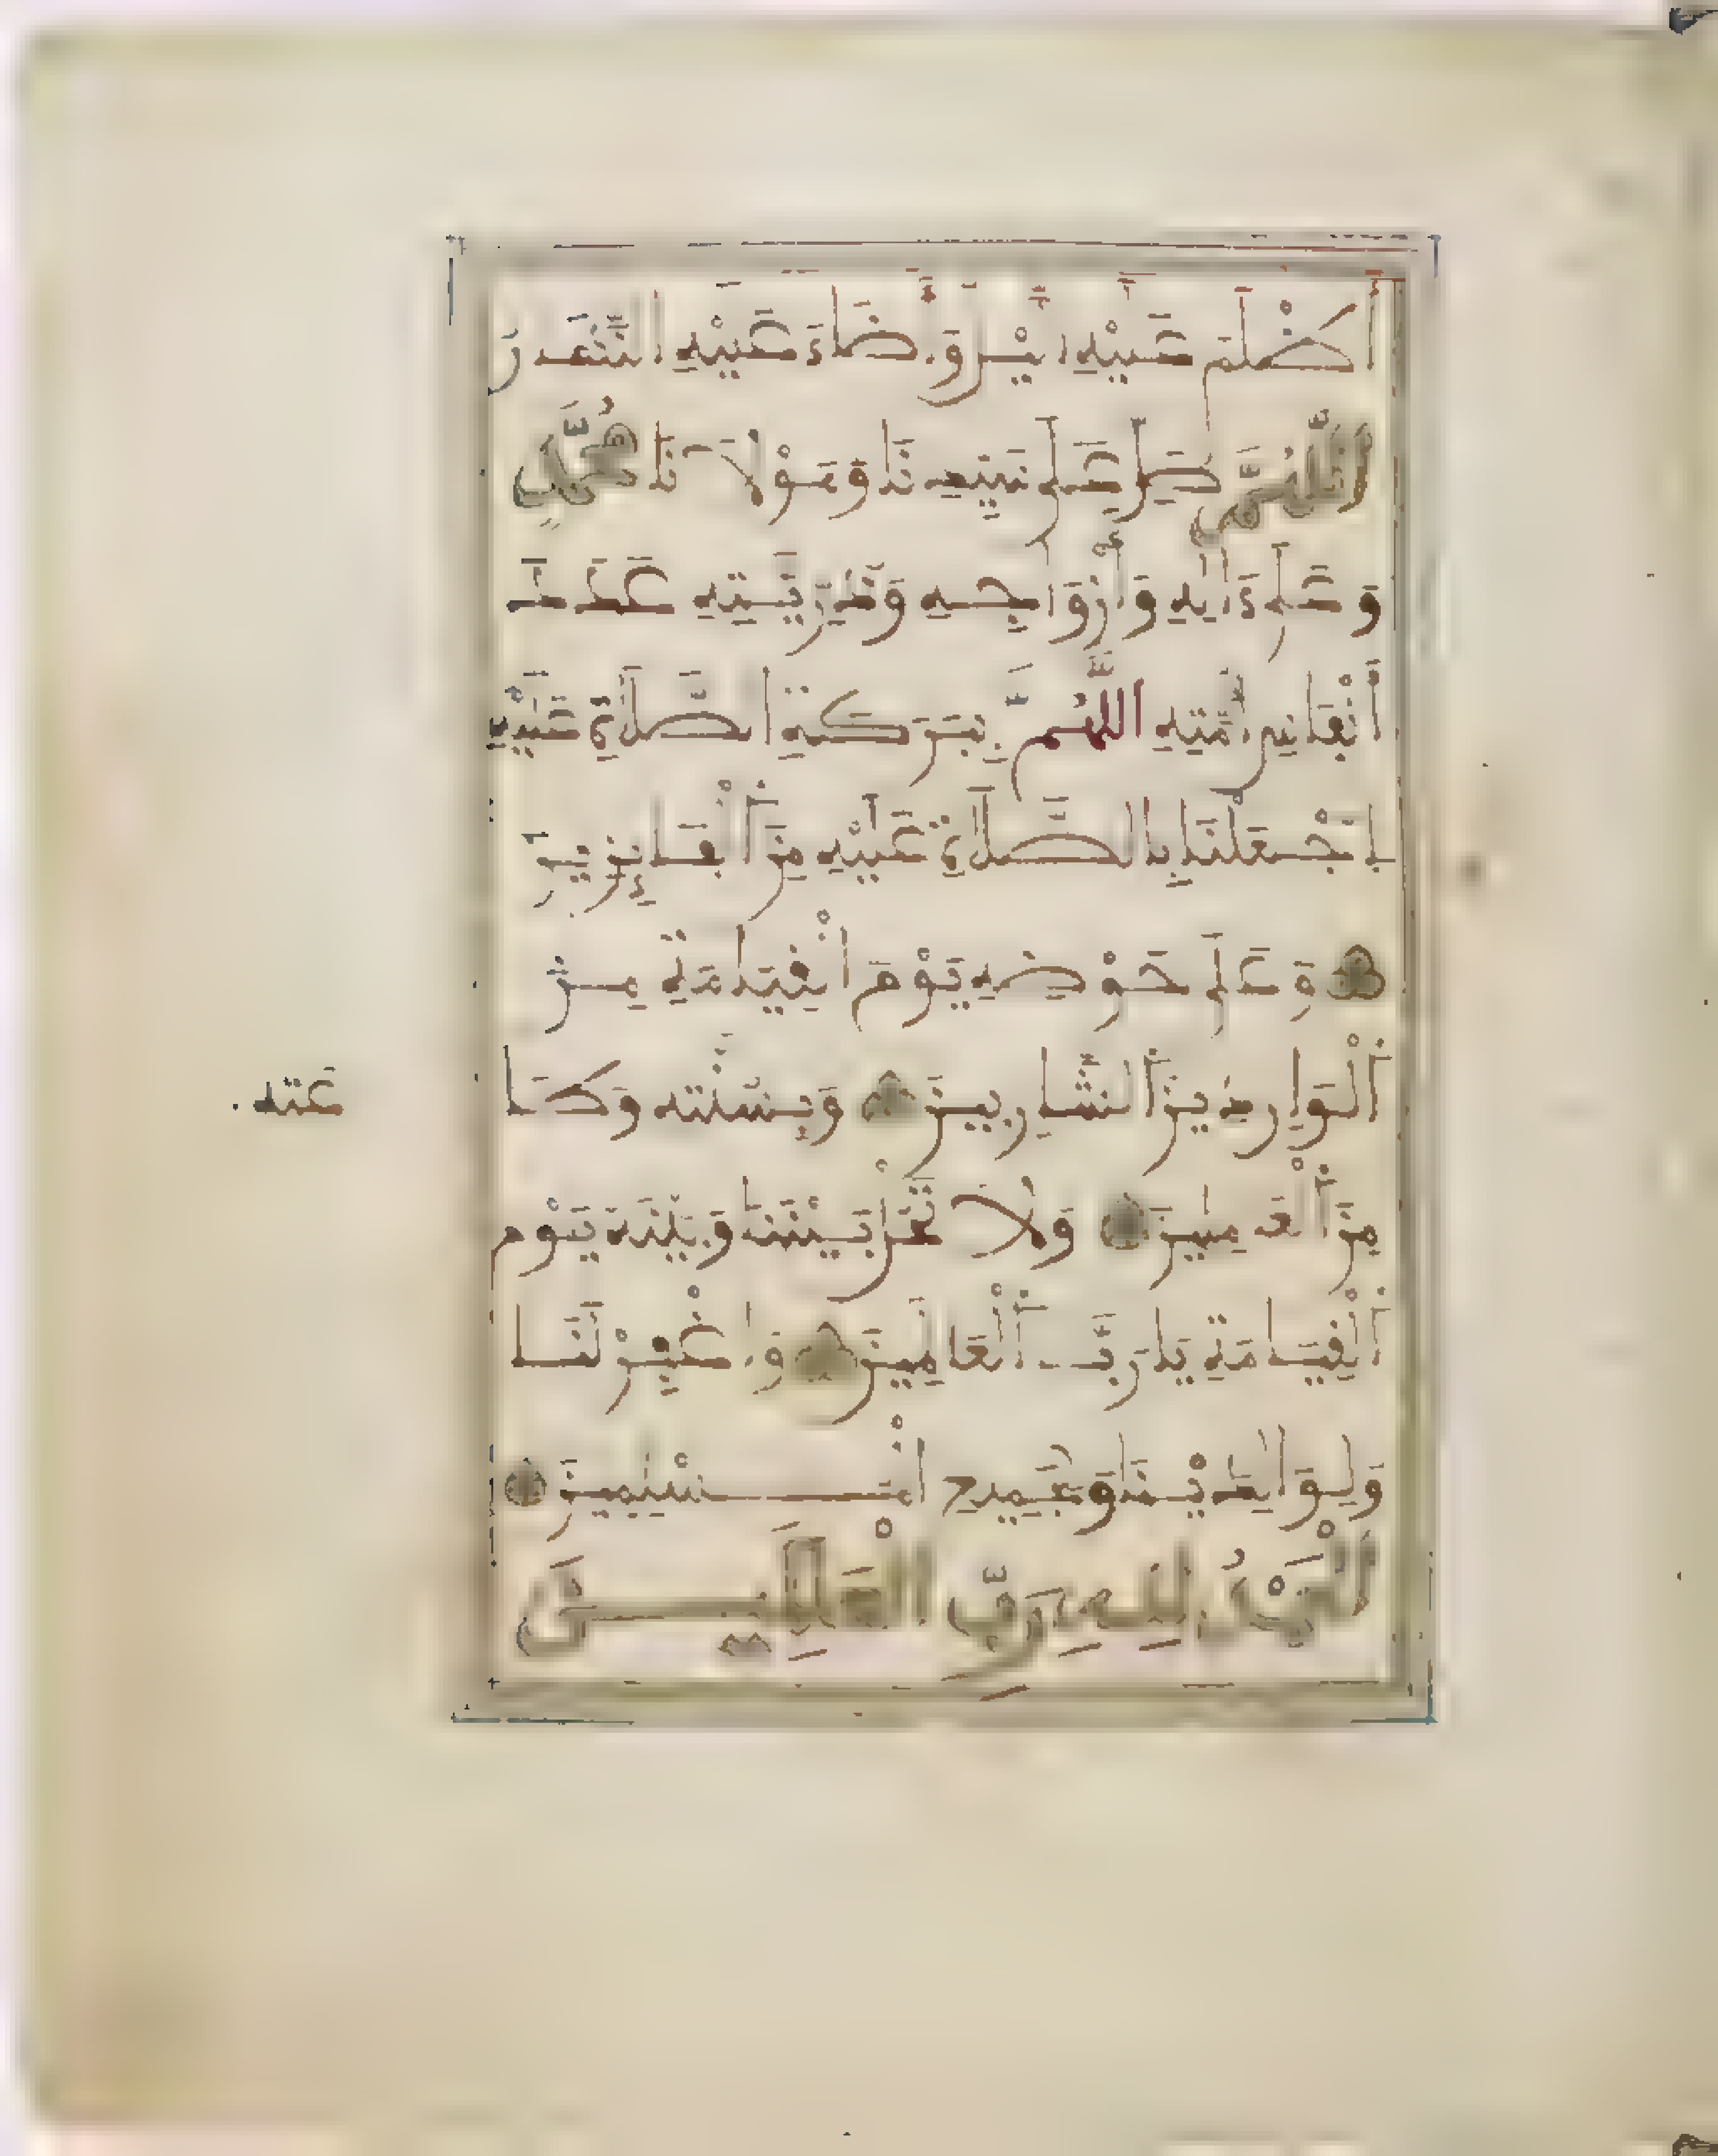 أَظْلَمَ عَلَيْهِ الَّيْلُ وَأَضَاءَ عَلَيْهِ النَّهَارُ
اَللَّهُمَّ صَلِّ عَلَى نَبِيِّنَا وَمَوْلَانَا مُحَمَّدٍ
وَعَلَى ءَالِهِ وَأَزْوَاجِهِ وَذُرِّيَّتِهِ عَدَدَ
أَنْفَاسِ أُمَّتِهِ اللَّهُمَّ بِبَرَكَةِ الصَّلَاةِ عَلَيْهِ
اِجْعَلْنَا بِالصَّلَاةِ عَلَيْهِ مِنَ الْفَائِزِينَ
وَعَلَى حَوْضِهِ يَوْمَ الْقِيَامَةِ مِنَ
الْوَارِدِينَ الشَّارِبِينَ وَبِسُنَّتِهِ وَطَا
عَتِهِ
مِنَ الْعَامِلِينَ وَلَا تَحُلْ بَيْنَنَا وَبَيْنَهُ يَوْمَ
الْقِيَامَةِ يَا رَبَّ الْعَالَمِينَ وَاغْفِرْ لَنَا
وَلِوَالِدَيْنَا وَجَمِيعِ الْمُسْلِمِينَ
اَلْحَمْدُ لِلهِ رَبِّ الْعَالَمِينَ